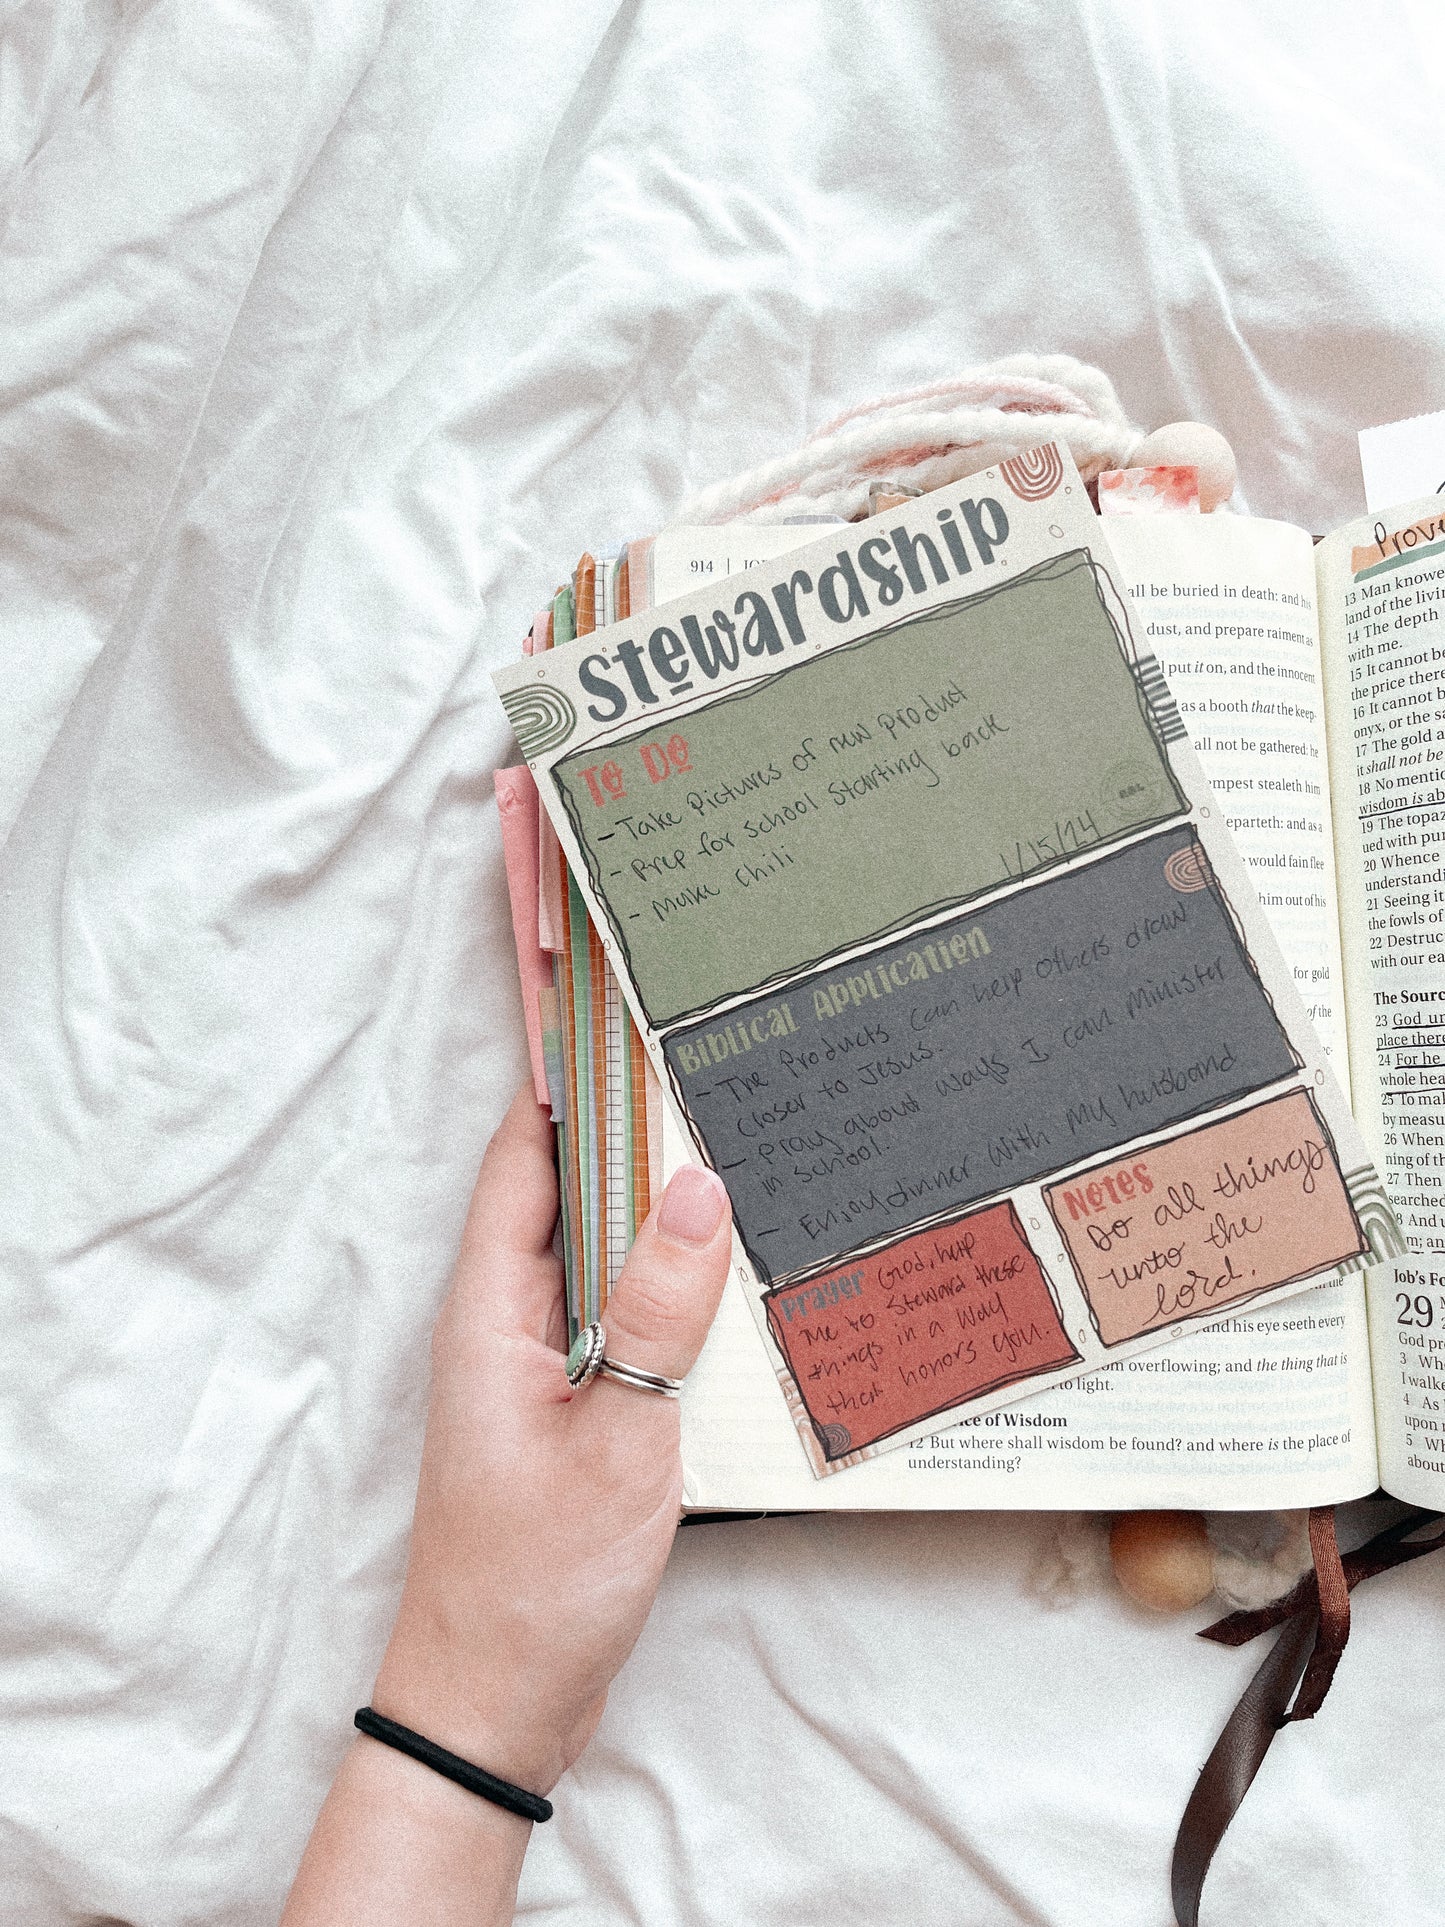 Stewardship
To Do
- Take Pictures of new product
- Prep for school starting back
- Make chili
1/15/24
Biblical Application
- The Products can help others draw
closer to Jesus.
- Pray about ways I can minister
in school.
- Enjoy dinner with my husband
Prayer God, help
me to Steward these
things in a way
that honors you.
Notes
Do all things
unto the
lord.
914 |
all be buried in death: and his
dust, and prepare raiment as
put it on, and the innocent
as a booth that the keep-
all not be gathered: he
tempest stealeth him
departeth: and as a
would fain flee
him out of his
for gold
of the
and his eye seeth every
overflowing; and the thing that is
to light.
of Wisdom
12 But where shall wisdom be found? and where is the place of
understanding?
13 Man
land of the
14 The depth
with me.
15 It cannot be
the price
16 It cannot
onyx, or the
17 The gold
it shall not be
18 No
wisdom is
19 The
20 Whence
21 Seeing it
the fowls of
22
with our
The
23 God
place
24 For he
whole
25 To
by
26 When
27 Then
searched
28 And
Job's
29
God
3
I
4 As
upon
5
about